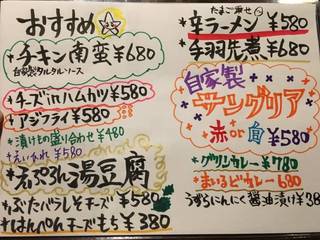 おすすめ
*チキン南蛮 ¥680
自家製タルタルソース
*チーズinハムカツ ¥580
*アジフライ ¥580
*漬けもの盛り合わせ ¥480
*えいひれ ¥580
湯豆腐
*ぶたバラしそチーズ ¥580
*はんぺんチーズもち ¥380
たまご乗せ
*辛ラーメン ¥580
*手羽先煮 ¥680
自家製
サングリア
赤or白 ¥580
*グリーンカレー ¥780
*まいるどカレー 680
うずらにんにく醤油漬け ¥380